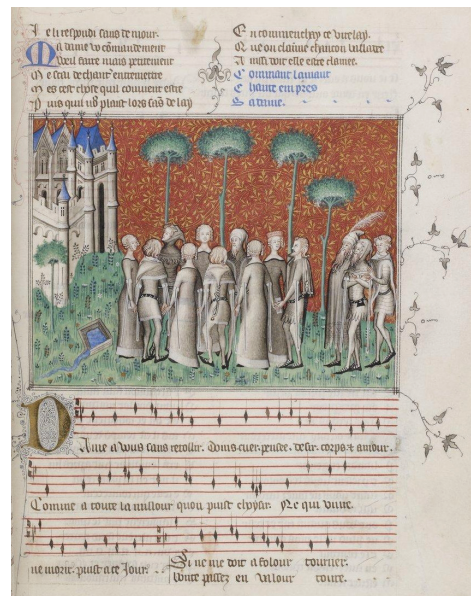 Je li respondi sans demour.
Ma dame vo commandement
Vueil faire mais petitement
Me scai de chant entremettre
Mes cest chose quil couvient estre
Puis quil vous plaist lors sans delay
En commencay ce virelay.
Que on claime chancon balladee
Ainsi doit elle estre clamee.
Comment lamant
chante empres
sa dame.
Dame a vous sans retollir. Doins cuer. pensee. desir. corps. & amour.
Comme a toute la millour quon puist choysir. Ne qui vivre.
ne morir. puist a ce Jour.
Si ne me doit a folour tourner.
toute